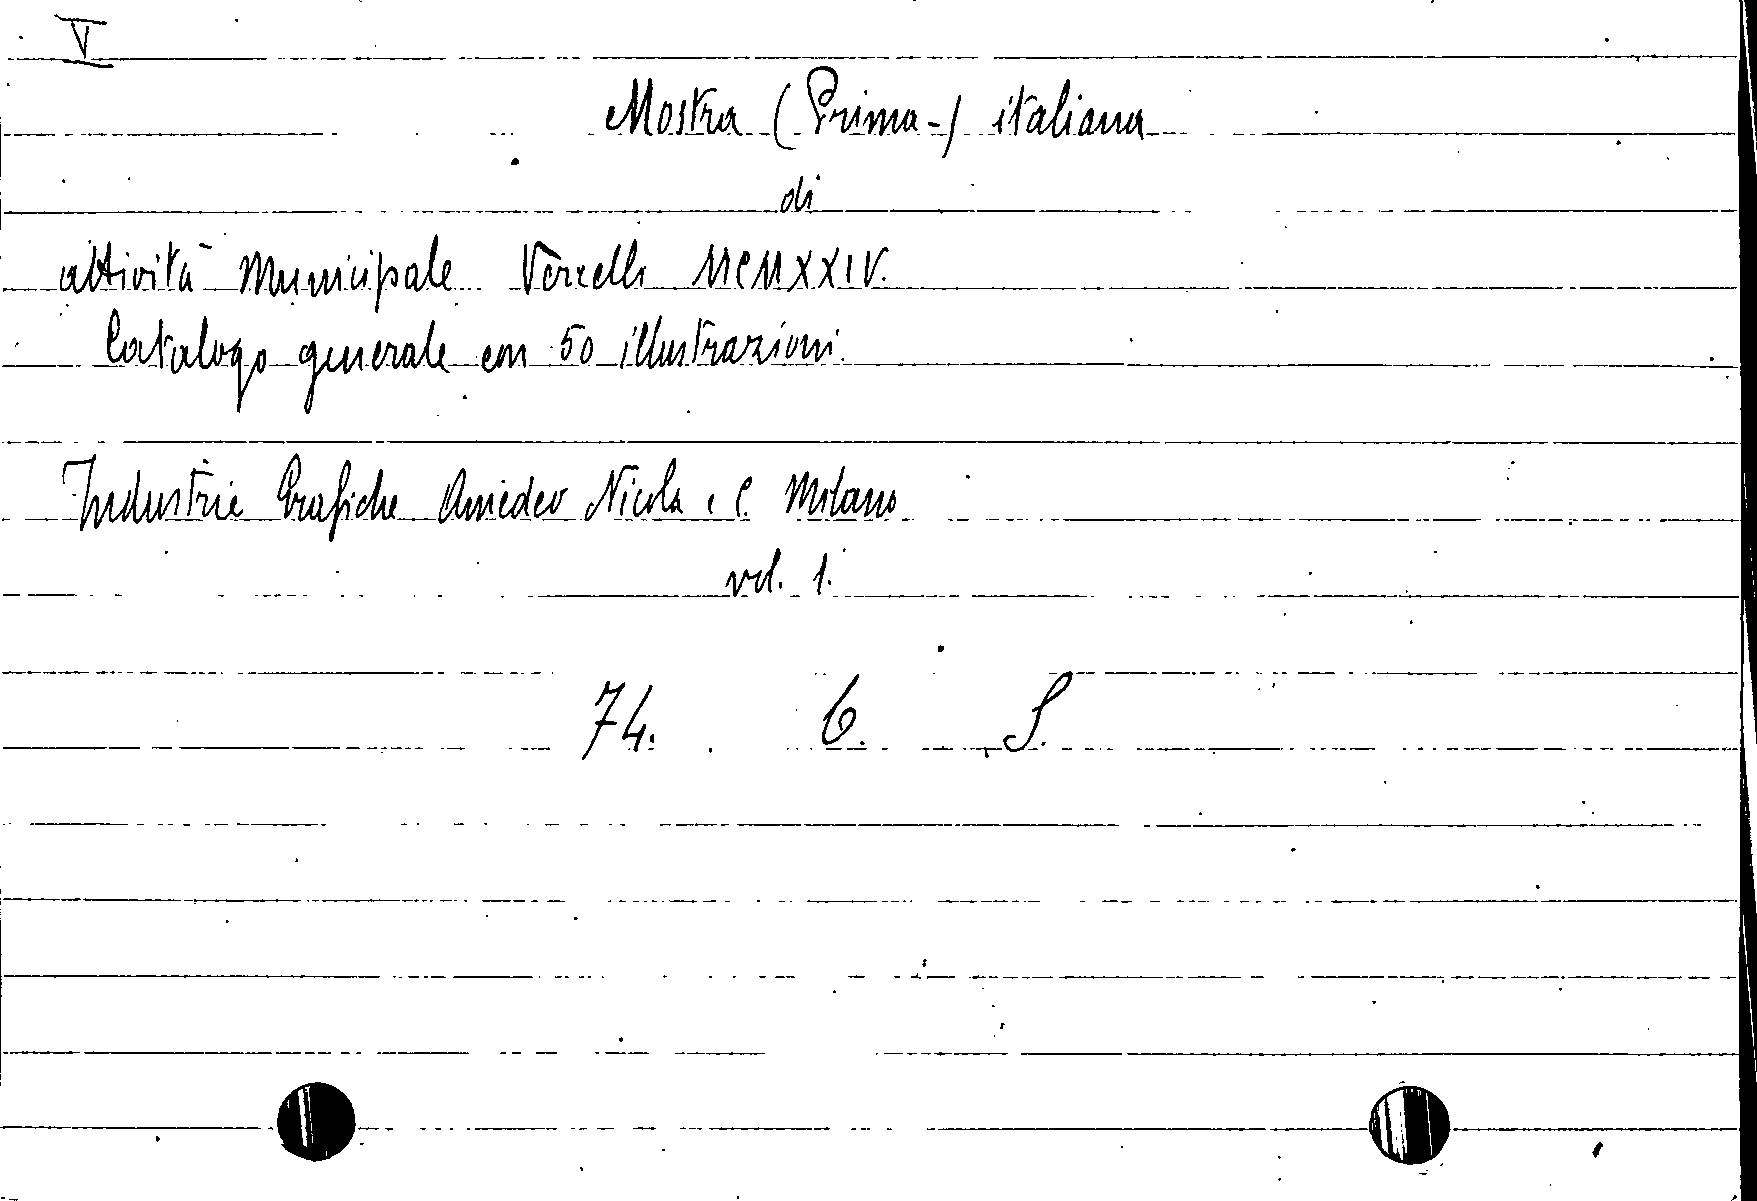 V
Mostra (Prima-) italiana
di
attività Municipale Vercelli MCMXXIV.
Catalogo generale con 50 illustrazioni.
Industrie Grafiche Amedeo Nicola e C. Milano
vol. 1.
74. C. S.